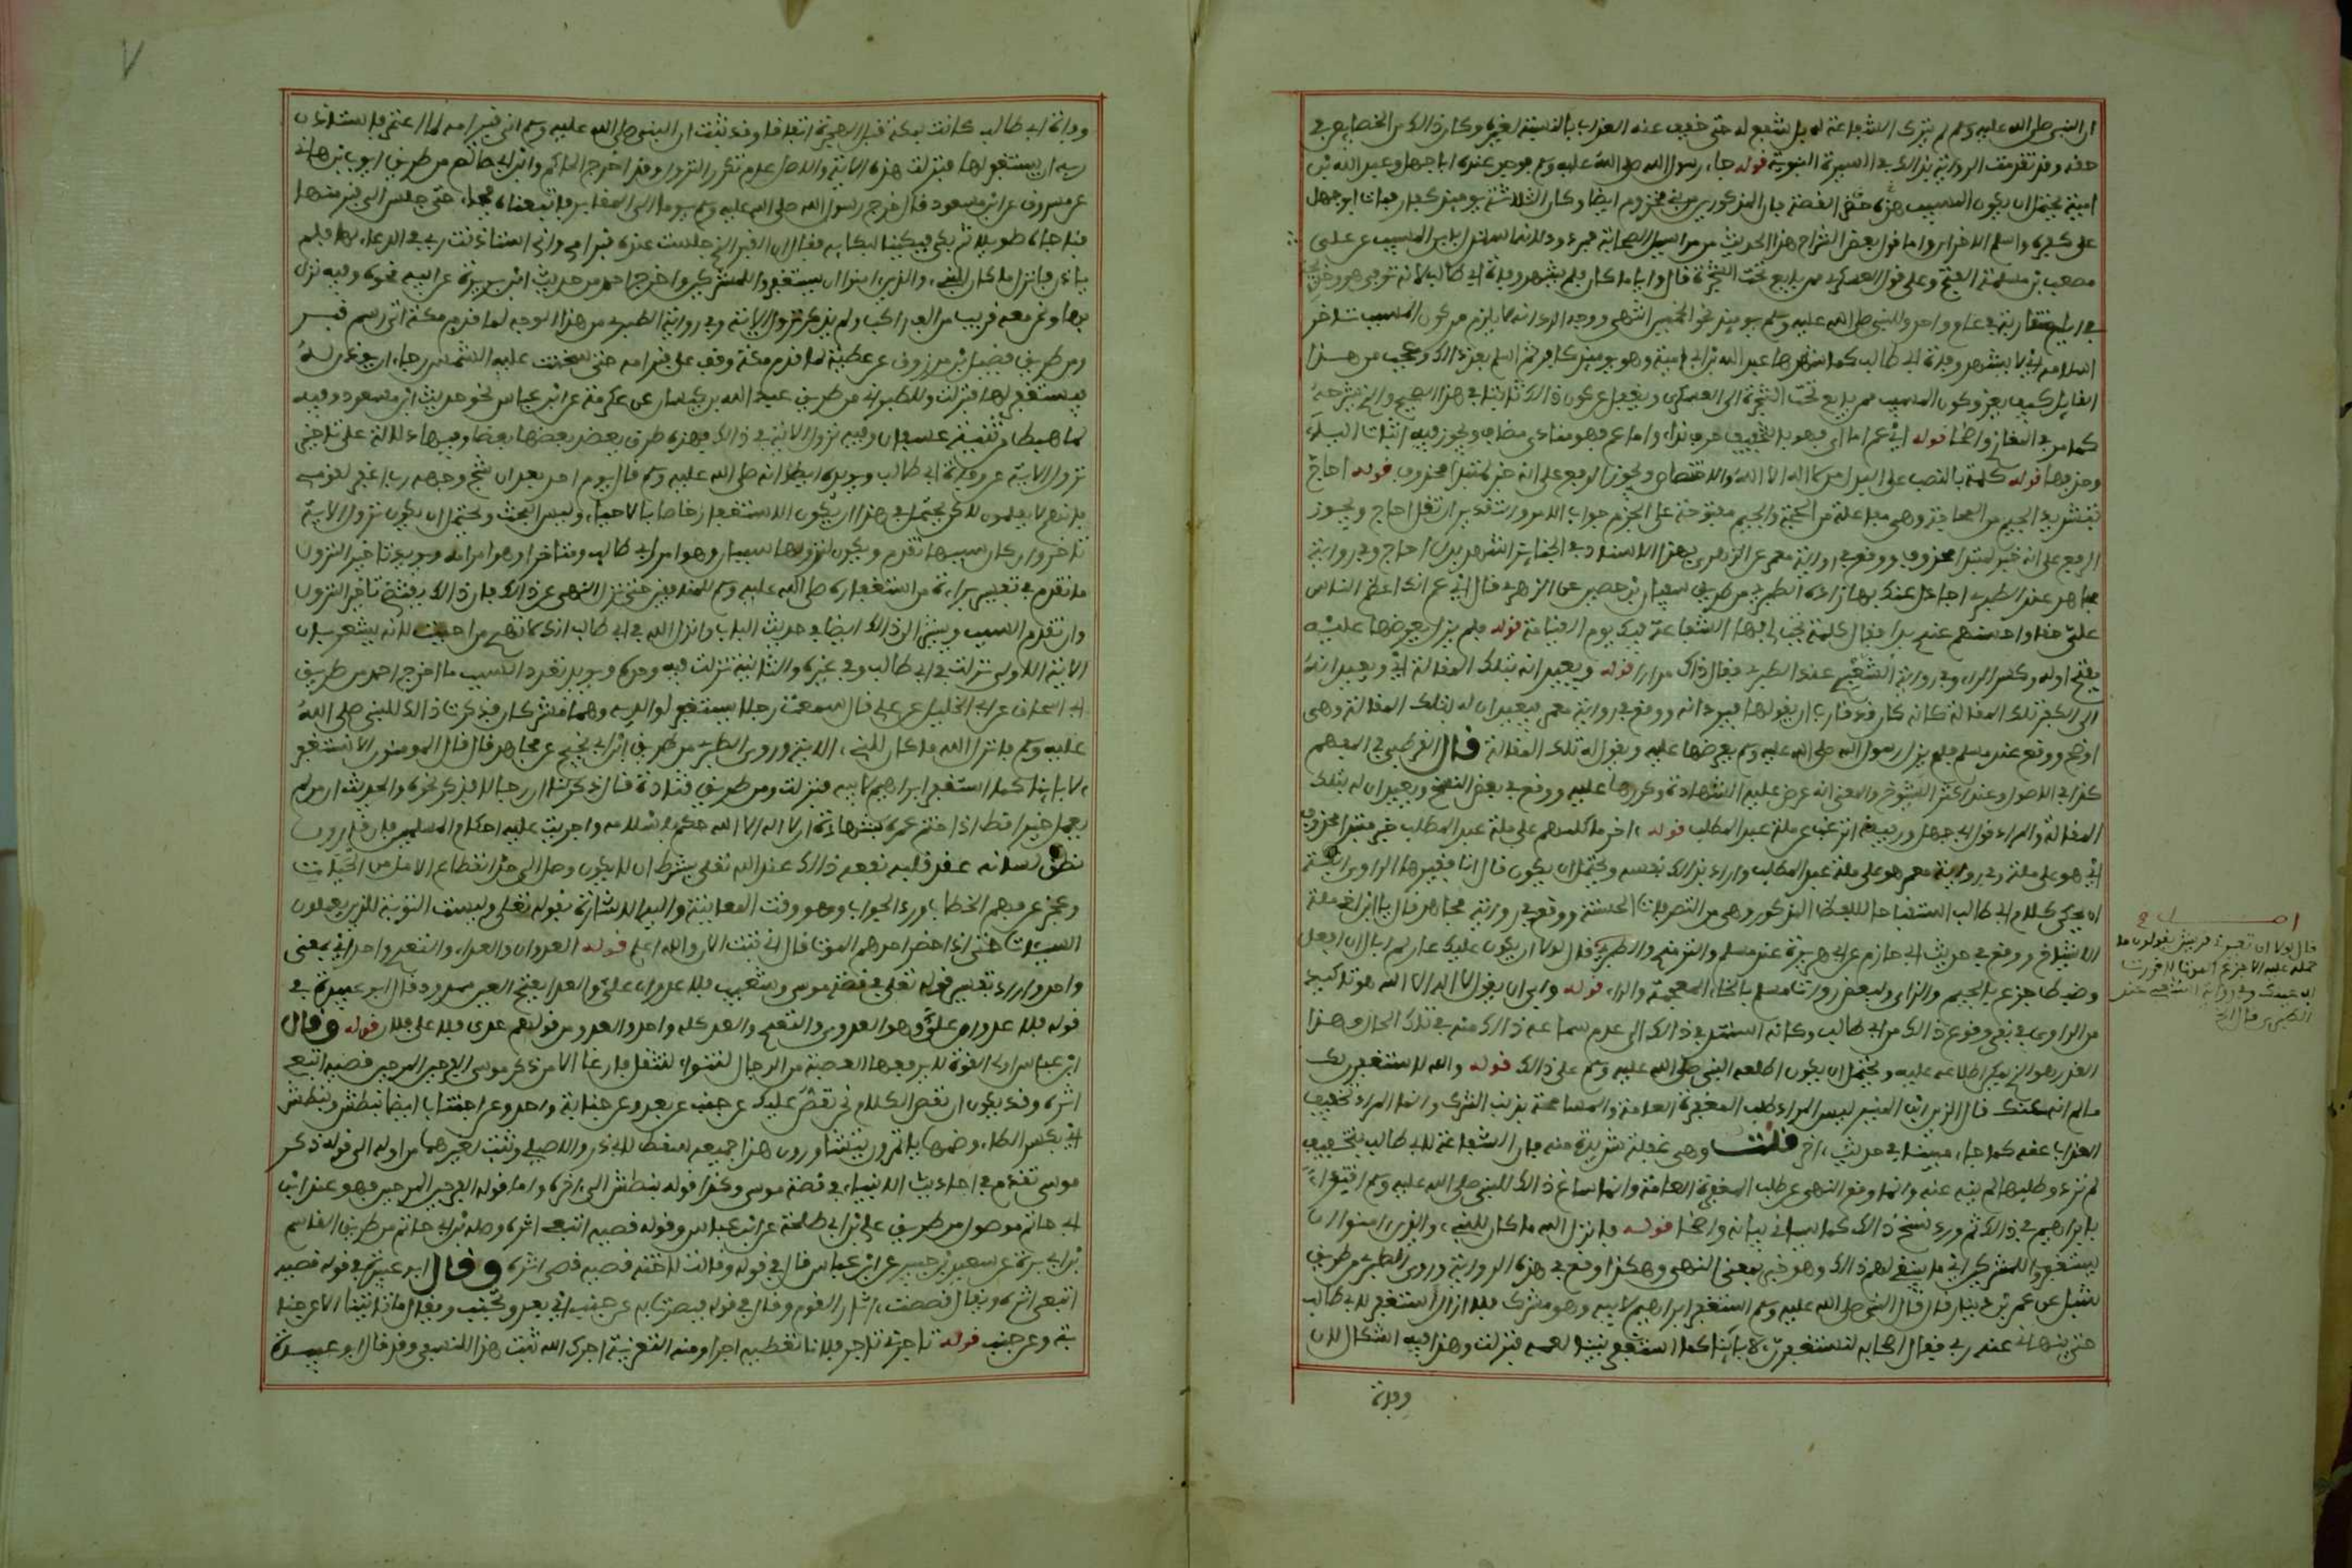 ان النبي صلى الله عليه وسلم لم يترك الشفاعة له بل شفع له حتى خفف عنه العذاب بالنسبة لغيره وكان ذالك من الخصايص في
حقه وقد تقدمت الرواية بذالك في السيرة النبوية قوله جاء رسول الله صلى الله عليه وسلم فوجد عنده ابا جهل وعبد الله بن
امية يحتمل ان يكون المسيب حضر هذه القصة فان المذكورين من بني مخزوم ايضا وكان الثلاثة يوميذ كفارا فمات ابو جهل
على كفره واسلم الاخران واما قول بعض الشراح هذا الحديث من مراسيل الصحابة فمردود لانه استدل بان المسيب على
مصعب من مسلمة الفتح وعلى قول العسكري ممن بايع تحت الشجرة قال وايا ما كان فلم يشهد وفاة ابي طالب لانه توفي هو وخديجة
في ايام متقاربة في عام واحد والنبي صلى الله عليه وسلم يوميذ نحو الخمسين انتهى ووجه الرد انه لا يلزم من كون المسيب تاخر
اسلامه ان لا يشهد وفاة ابي طالب كما شهدها عبد الله بن ابي امية وهو يوميذ كافر ثم اسلم بعد ذالك وعجب من هذا
القايل كيف يعزو كون المسيب ممن بايع تحت الشجرة الى العسكري ويغفل عن كون ذالك ثابتا في هذا الصحيح الذي شرحه
كما مر في المغازي واضحا قوله اي عم اما اي فهو بالتخفيف حرف نداء واما عم فهو منادى مضاف ويجوز فيه اثبات الياء
وحذفها قوله كلمة بالنصب على البدل من لا اله الا الله والاختصاص ويجوز الرفع على انه خبر لمبتدا محذوف قوله احاج
بتشديد الجيم من المحاجة وهي مفاعلة من الحجة والجيم مفتوحة على الجزم جواب الامر والتقدير ان تقل احاج ويجوز
الرفع على انه خبر لمبتدا محذوف ووقع في رواية معمر عن الزهري بهذا الاسناد في الجنايز اشهد بدل احاج وفي رواية
مجاهد عند الطبري اجادل عنك بها زاد الطبري من طريق سفيان بن حصين عن الزهري قال اي عم انك اعظم الناس
علي حقا واحسنهم عندي يدا فقل كلمة تجب لي بها الشفاعة فيك يوم القيامة قوله فلم يزل يعرضها عليه
بفتح اوله وكسر الراء وفي رواية الشعبي عند الطبري فقال ذلك مرارا قوله ويعيد انه بتلك المقالة اي ويعيد انه
الى الكفر بتلك المقالة كانه كان قد قارب ان يقولها فيردانه ووقع في رواية معمر فيعيدان له بتلك المقالة وهي
اوضح ووقع عند مسلم فلم يزل رسول الله صلى الله عليه وسلم يعرضها عليه ويقول له تلك المقالة قال القرطبي في المفهم
كذا في الاصول وعند اكثر الشيوخ والمعنى انه عرض عليه الشهادة وكررها عليه ووقع في بعض النسخ ويعيدان له بتلك
المقالة والمراد قول ابي جهل ورفيقه اترغب عن ملة عبد المطلب قوله اخر ما كلمهم على ملة عبد المطلب خبر مبتدا محذوف
اي هو على ملة وفي رواية معمر هو على ملة عبد المطلب واراد بذالك نفسه ويحتمل ان يكون قال انا فغيرها الراوي انفة
ان يحكي كلام ابي طالب استقباحا للفظ المذكور وهي من التصرفات الحسنة ووقع في رواية مجاهد قال يا ابن اخي ملة
الاشياخ ووقع في حديث ابي حازم عن ابي هريرة عند مسلم والترمذي والطبري قال لولا ان يكون عليك عار لم ابال ان افعل
وضبط جزع بالجيم والزاي ولبعض رواة مسلم بالخاء المعجمة والراء قوله وابى ان يقول لا اله الا الله هو تاكيد
من الراوي في نفي وقوع ذالك من ابي طالب وكانه استند في ذالك الى عدم سماعه ذالك منه في تلك الحال وهذا
القدر هو الذي يمكن اطلاعه عليه ويحتمل ان يكون اطلعه النبي صلى الله عليه وسلم على ذالك قوله والله لاستغفرن لك
ما لم انه عنك قال الزين ابن المنير ليس المراد طلب المغفرة العامة والمسامحة بذنب الشرك وانما المراد تخفيف
العذاب عنه كما جاء مبينا في حديث اخر قلت وهي غفلة شديدة منه فان الشفاعة لابي طالب بتخفيف
لم ترد وطلبها لم ينه عنه وانما وقع النهي عن طلب المغفرة العامة وانما ساغ ذالك للنبي صلى الله عليه وسلم اقتداء
بابراهيم في ذالك ثم ورد نسخ ذالك كما سياتي بيانه واضحا قوله فانزل الله ما كان للنبي والذين امنوا ان
يستغفروا للمشركين اي ما ينبغي لهم ذالك وهو خبر بمعنى النهي وهكذا وقع في هذه الرواية وروى الطبري من طريق
شبل عن عمرو بن دينار قال قال النبي صلى الله عليه وسلم استغفر ابراهيم لابيه وهو مشرك فلا ازال استغفر لابي طالب
حتى ينهاني عنه ربي فقال اصحابه لنستغفرن لابائنا كما استغفر نبينا لعمه فنزلت وهذا فيه اشكال لان
وفاة
قال لولا ان تعيرني قريش يقولون ما
حمله عليه الا جزع الموت لاقررت
بها عينك وفي رواية الشعبي عند
الطبري قال
٧
وفاة ابي طالب كانت بمكة قبل الهجرة اتفاقا وقد ثبت ان النبي صلى الله عليه وسلم اتى قبر امه لما اعتمر فاستاذن
ربه ان يستغفر لها فنزلت هذه الاية والاصل عدم تكرر النزول وقد اخرج الحاكم وابن ابي حاتم من طريق ايوب بن هاني
عن مسروق عن ابن مسعود قال خرج رسول الله صلى الله عليه وسلم يوما الى المقابر فاتبعناه فجاء حتى جلس الى قبر منها
فناجاه طويلا ثم بكى فبكينا لبكايه فقال ان القبر الذي جلست عنده قبر امي واني استاذنت ربي في الدعاء لها فلم
ياذن فانزل ما كان للنبي والذين امنوا ان يستغفروا للمشركين واخرج احمد من حديث ابن بريدة عن ابيه نحوه وفيه نزل
بنا ونحن معه قريب من الف راكب ولم يذكر نزول الاية وفي رواية الطبري من هذا الوجه لما قدم مكة اتى رسم قبر
ومن طريق فضيل بن مرزوق عن عطية لما قدم مكة وقف على قبر امه حتى سخنت عليه الشمس رجاء ان يوذن له
فيستغفر لها فنزلت وللطبراني من طريق عبد الله بن كيسان عن عكرمة عن ابن عباس نحو حديث ابن مسعود وفيه
لما هبط من ثنية عسفان وفيه نزول الاية في ذالك فهذه طرق يعضد بعضها بعضا وفيها دلالة على تاخير
نزول الاية عن وفاة ابي طالب ويويده ايضا انه صلى الله عليه وسلم قال يوم احد بعد ان شج وجهه رب اغفر لقومي
فانهم لا يعلمون لاكن يحتمل في هذا ان يكون الاستغفار خاصا بالاحياء وليس البحث ويحتمل ان يكون نزول الاية
تاخر وان كان سببها تقدم ويكون لنزولها سببان وهو امر ابي طالب ومتاخر وهو امر امه ويويد تاخير النزول
ما تقدم في تفسير براءة من استغفاره صلى الله عليه وسلم للمنافقين حتى نزل النهي عن ذالك فان ذالك يقتضي تاخير النزول
وان تقدم السبب ويشير الى ذالك ايضا في حديث الباب وانزل الله في ابي طالب انك لا تهدي من احببت لانه يشعر بان
الاية الاولى نزلت في ابي طالب وفي غيره والثانية نزلت فيه وحده ويويد تعدد السبب ما اخرج احمد من طريق
ابي اسحاق عن ابي الخليل عن علي قال سمعت رجلا يستغفر لوالديه وهما مشركان فذكرت ذالك للنبي صلى الله
عليه وسلم فانزل الله ما كان للنبي الاية وروى الطبري من طريق ابن ابي نجيح عن مجاهد قال قال المومنون الا نستغفر
لاباينا كما استغفر ابراهيم لابيه فنزلت ومن طريق قتادة قال ذكرنا ان رجالا فذكر نحوه والحديث ان من لم
يعمل خيرا قط اذا ختم عمره بشهادة ان لا اله الا الله حكم باسلامه واجريت عليه احكام المسلمين فان قارن
نطق لسانه عقد قلبه نفعه ذالك عند الله تعلى بشرط ان لا يكون وصل الى حد انقطاع الامل من الحياة
وعجز عن فهم الخطاب ورد الجواب وهو وقت المعاينة واليه الاشارة بقوله تعلى وليست التوبة للذين يعملون
السيئات حتى اذا حضر احدهم الموت قال اني تبت الان والله اعلم قوله العدوان والعداء والتعدي واحد اي بمعنى
واحد واراد تفسير قوله تعلى في قصة موسى وشعيب فلا عدوان علي والعداء بفتح العين ممدود قال ابو عبيدة في
قوله فلا عدوان علي وهو العدو والتعدي والعد كله واحد والعدو من قولهم عدى فلان على فلان قوله وقال
ابن عباس اولي القوة لا يرفعها العصبة من الرجال لتنوا لتثقل فارغا الا من ذكر موسى الفرحين المرحين قصيه اتبعي
اثره وقد يكون ان تقص الكلام نحن نقص عليك عن جنب عن بعد وعن جناية واحد وعن اجتناب ايضا نبطش ونبطش
اي بكسر الطاء وضمها ياتمرون يتشاورون هذا جميعه سقط لابي ذر والاصيلي وثبت لغيرهما من اوله الى قوله ذكر
موسى تقدم في احاديث الانبياء في قصة موسى وكذا قوله نبطش الى اخره واما قوله الفرحين المرحين فهو عند ابن
ابي حاتم موصول من طريق علي بن ابي طلحة عن ابن عباس وقوله قصيه اتبعي اثره وصله بن ابي حاتم من طريق القاسم
بن ابي بزة عن سعيد بن جبير عن ابن عباس قال في قوله وقالت لاخته قصيه قصي اثره وقال ابو عبيدة في قوله قصيه
اتبعي اثره ويقال قصصت اثار القوم وقال في قوله فبصرت به عن جنب اي بعد وتجنب ويقال ما تاتينا الا عن جنا
بة وعن جنب قوله تاجرني تاجر فلانا تعطيه اجرا ومنه التعزية اجرك الله ثبت هذا للنسفي وقد قال ابو عبيدة